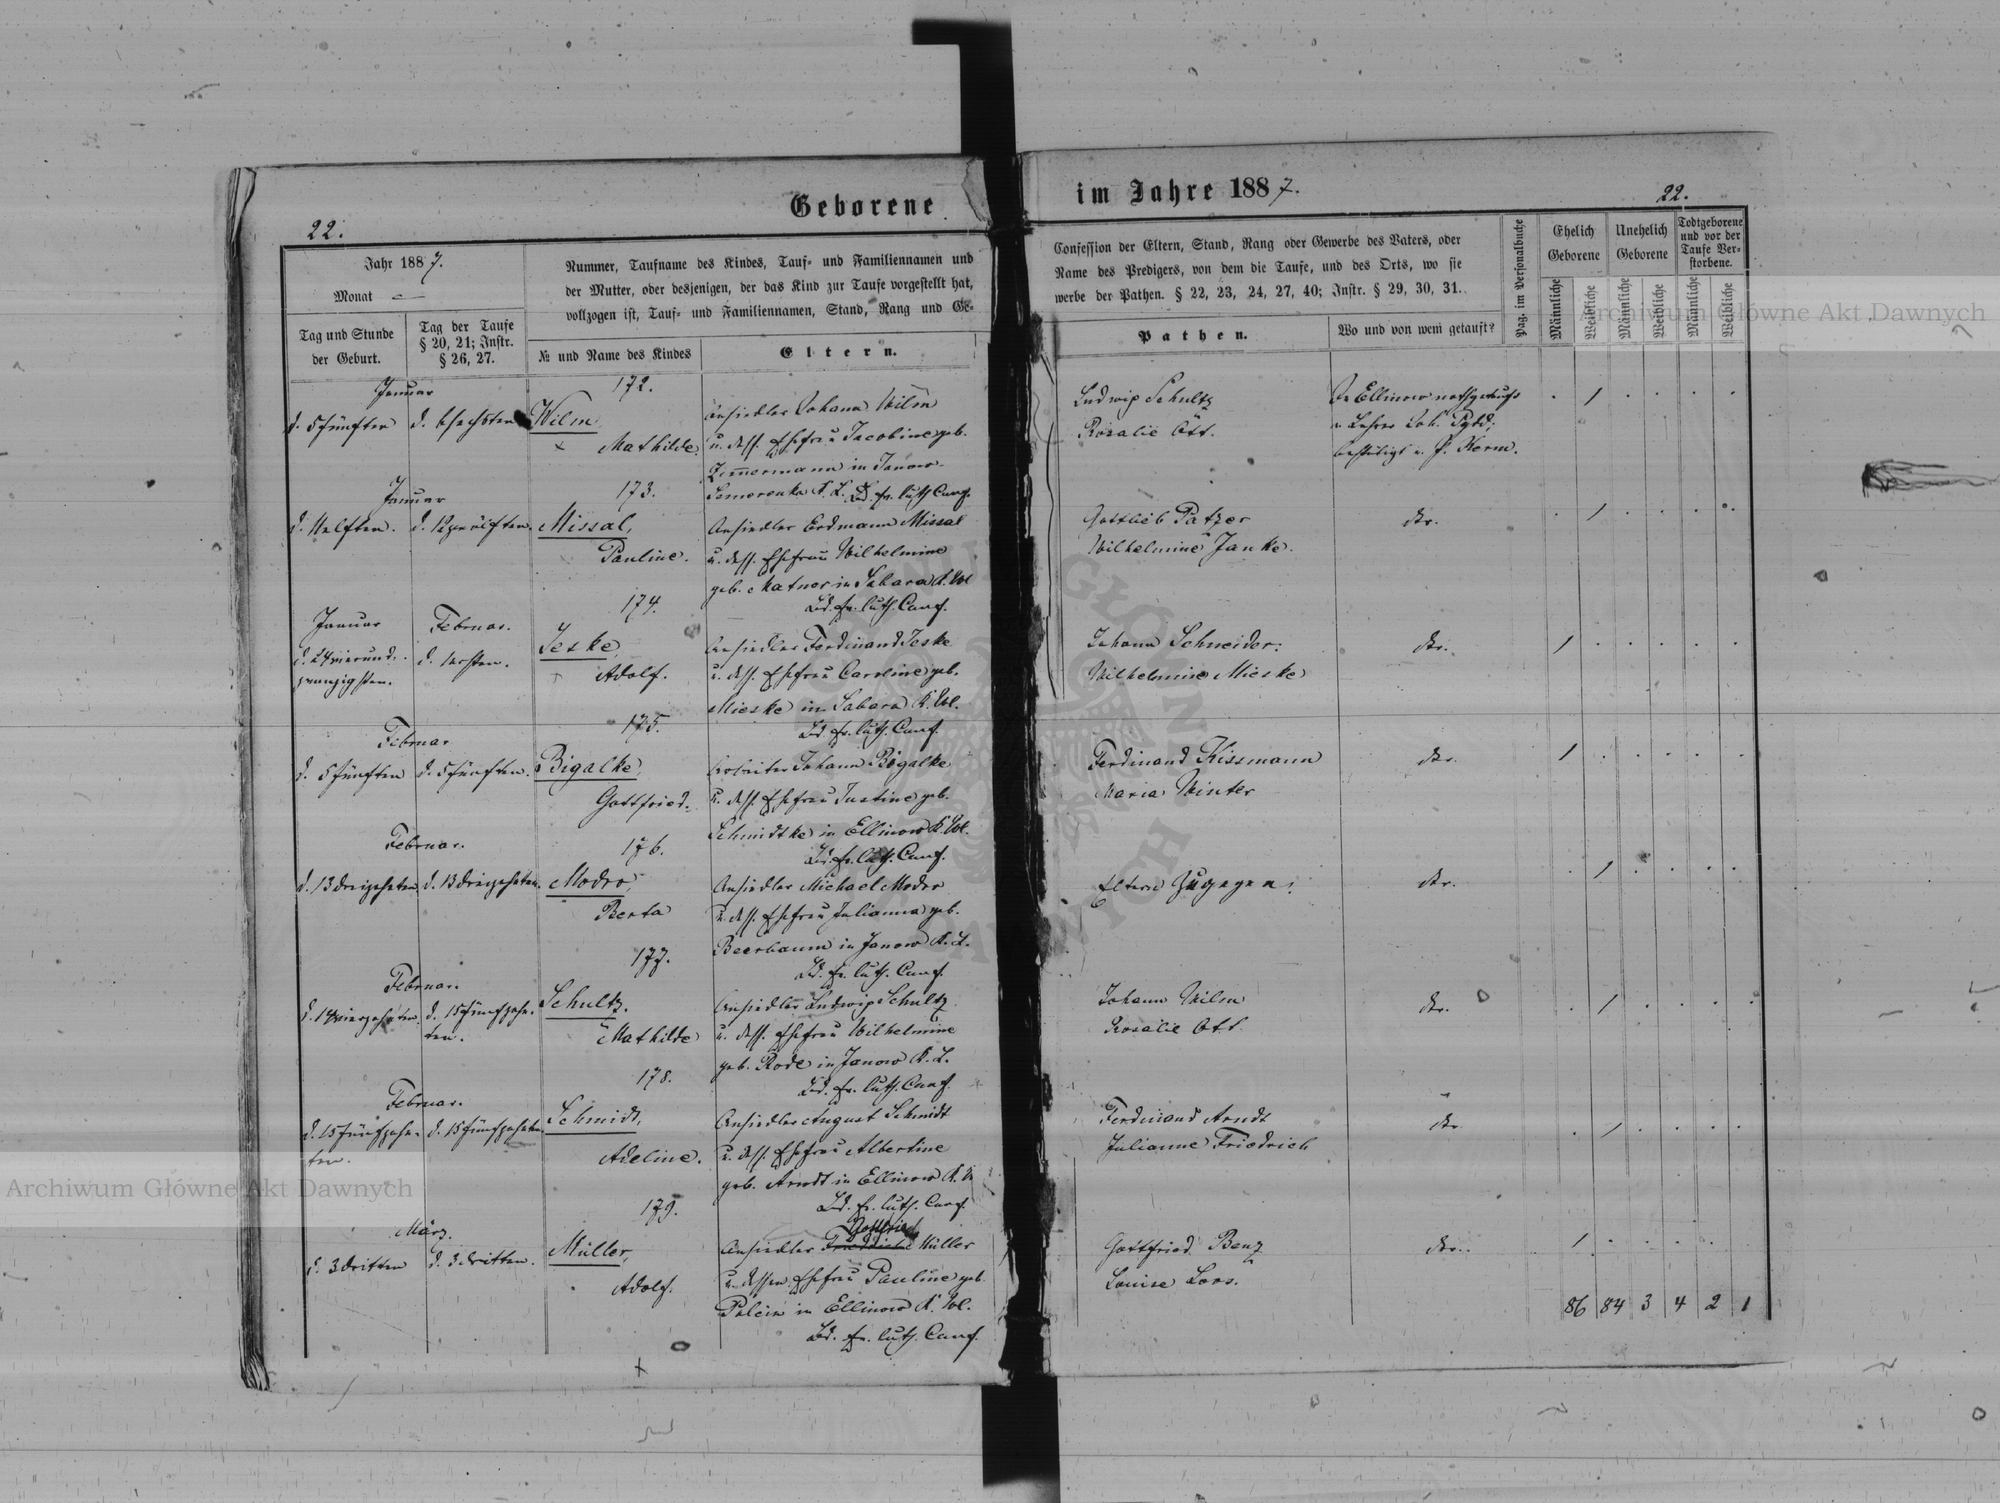 Geborene
im Jahre 1887.
22.
22.
Jahr 1887.
Monat
Tag und Stunde
der Geburt.
Tag der Taufe
§ 20, 21; Instr.
§ 26, 27.
Nummer, Taufname des Kindes, Tauf- und Familiennamen und
der Mutter, oder desjenigen, der das Kind zur Taufe vorgestellt hat,
vollzogen ist, Tauf- und Familiennamen, Stand, Rang und Ge-
№ und Name des Kindes
Eltern.
Confession der Eltern, Stand, Rang oder Gewerbe des Vaters, oder
Name des Predigers, von dem die Taufe, und des Orts, wo sie
werbe der Pathen. § 22, 23, 24, 27, 40; Instr. § 29, 30, 31.
Pathen.
Wo und von wem getauft?
Pag. im Personalbuche
Ehelich
Geborene
Unehelich
Geborene
Todtgeborene
und vor der
Taufe Ver-
storbene.
Männliche
Weibliche
Männliche
Weibliche
Männliche
Weibliche
Januar
d. 5 fünften
d. 6 sechsten
172.
Wilm
Mathilde.
Ansiedler Johann Wilm
u. dess. Ehefrau Jacobine geb.
Zimmermann in Janow-
Ludwig Schultz
Rosalie Ott.
In Ellinow
v. Lehrer Joh.
bestätigt v. P.
1
Januar
d. 11 elften.
d. 12 zwölften.
173.
Missal,
Pauline.
K. L. Bd. ev. luth. Conf.
Ansiedler Erdmann Missal
u. dess. Ehefrau Wilhelmine
geb. in Sabara K. Wl
Bd. ev. luth. Conf.
Gottlieb Patzer
Wilhelmine Janke.
1
Januar
d. 24 vierund-
zwanzigsten.
Februar.
d. 1 ersten.
174.
Jeske,
Adolf.
Ansiedler Ferdinand Jeske
u. dess. Ehefrau Caroline geb.
Mieske in Sabara K. Wl.
Bd. ev. luth. Conf.
Johann Schneider.
Wilhelmine Mieske
1
Februar
d. 5 fünften
d. 5 fünften.
175.
Bigalke,
Gottfried.
Arbeiter Johann Bigalke
u. dess. Ehefrau Justine geb.
Schmidtke in Ellinow K. Wl.
Bd. ev. luth. Conf.
Ferdinand Kissmann
Maria Winter
1
Februar.
d. 13 dreizehnten
d. 13 dreizehnten.
176.
Modro,
Berta
Ansiedler Michael Modro
u. dess. Ehefrau Julianna geb.
Beerbaum in Janow K. L.
Bd. ev. luth. Conf.
Eltern zugegen.
1
Februar.
d. 14 vierzehnten.
d. 15 fünfzehn-
ten.
177.
Schultz.
Mathilde
Ansiedler Ludwig Schultz
u. dess. Ehefrau Wilhelmine
geb. Rode in Janow K. L.
Bd. ev. luth. Conf.
Johann Wilm
Rosalie Ott
1
Februar.
d. 15 fünfzehn-
ten.
d. 15 fünfzehnten
178.
Schmidt,
Adeline.
Ansiedler August Schmidt
u. dess. Ehefrau Albertine
geb. Arndt in Ellinow K. W
Bd. ev. luth. Conf.
Ferdinand Arndt
Julianne Friedrich
1
März.
d. 3 dritten
d. 3 dritten.
179.
Müller,
Adolf.
Gottfried
Ansiedler Müller
u. dessen Ehefrau Pauline geb.
in Ellinow K. Wl.
Bd. ev. luth. Conf.
Gottfried Benz
Louise Loos.
1
86 84 3 4 2 1
Archiwum Główne Akt Dawnych
Archiwum Główne Akt Dawnych